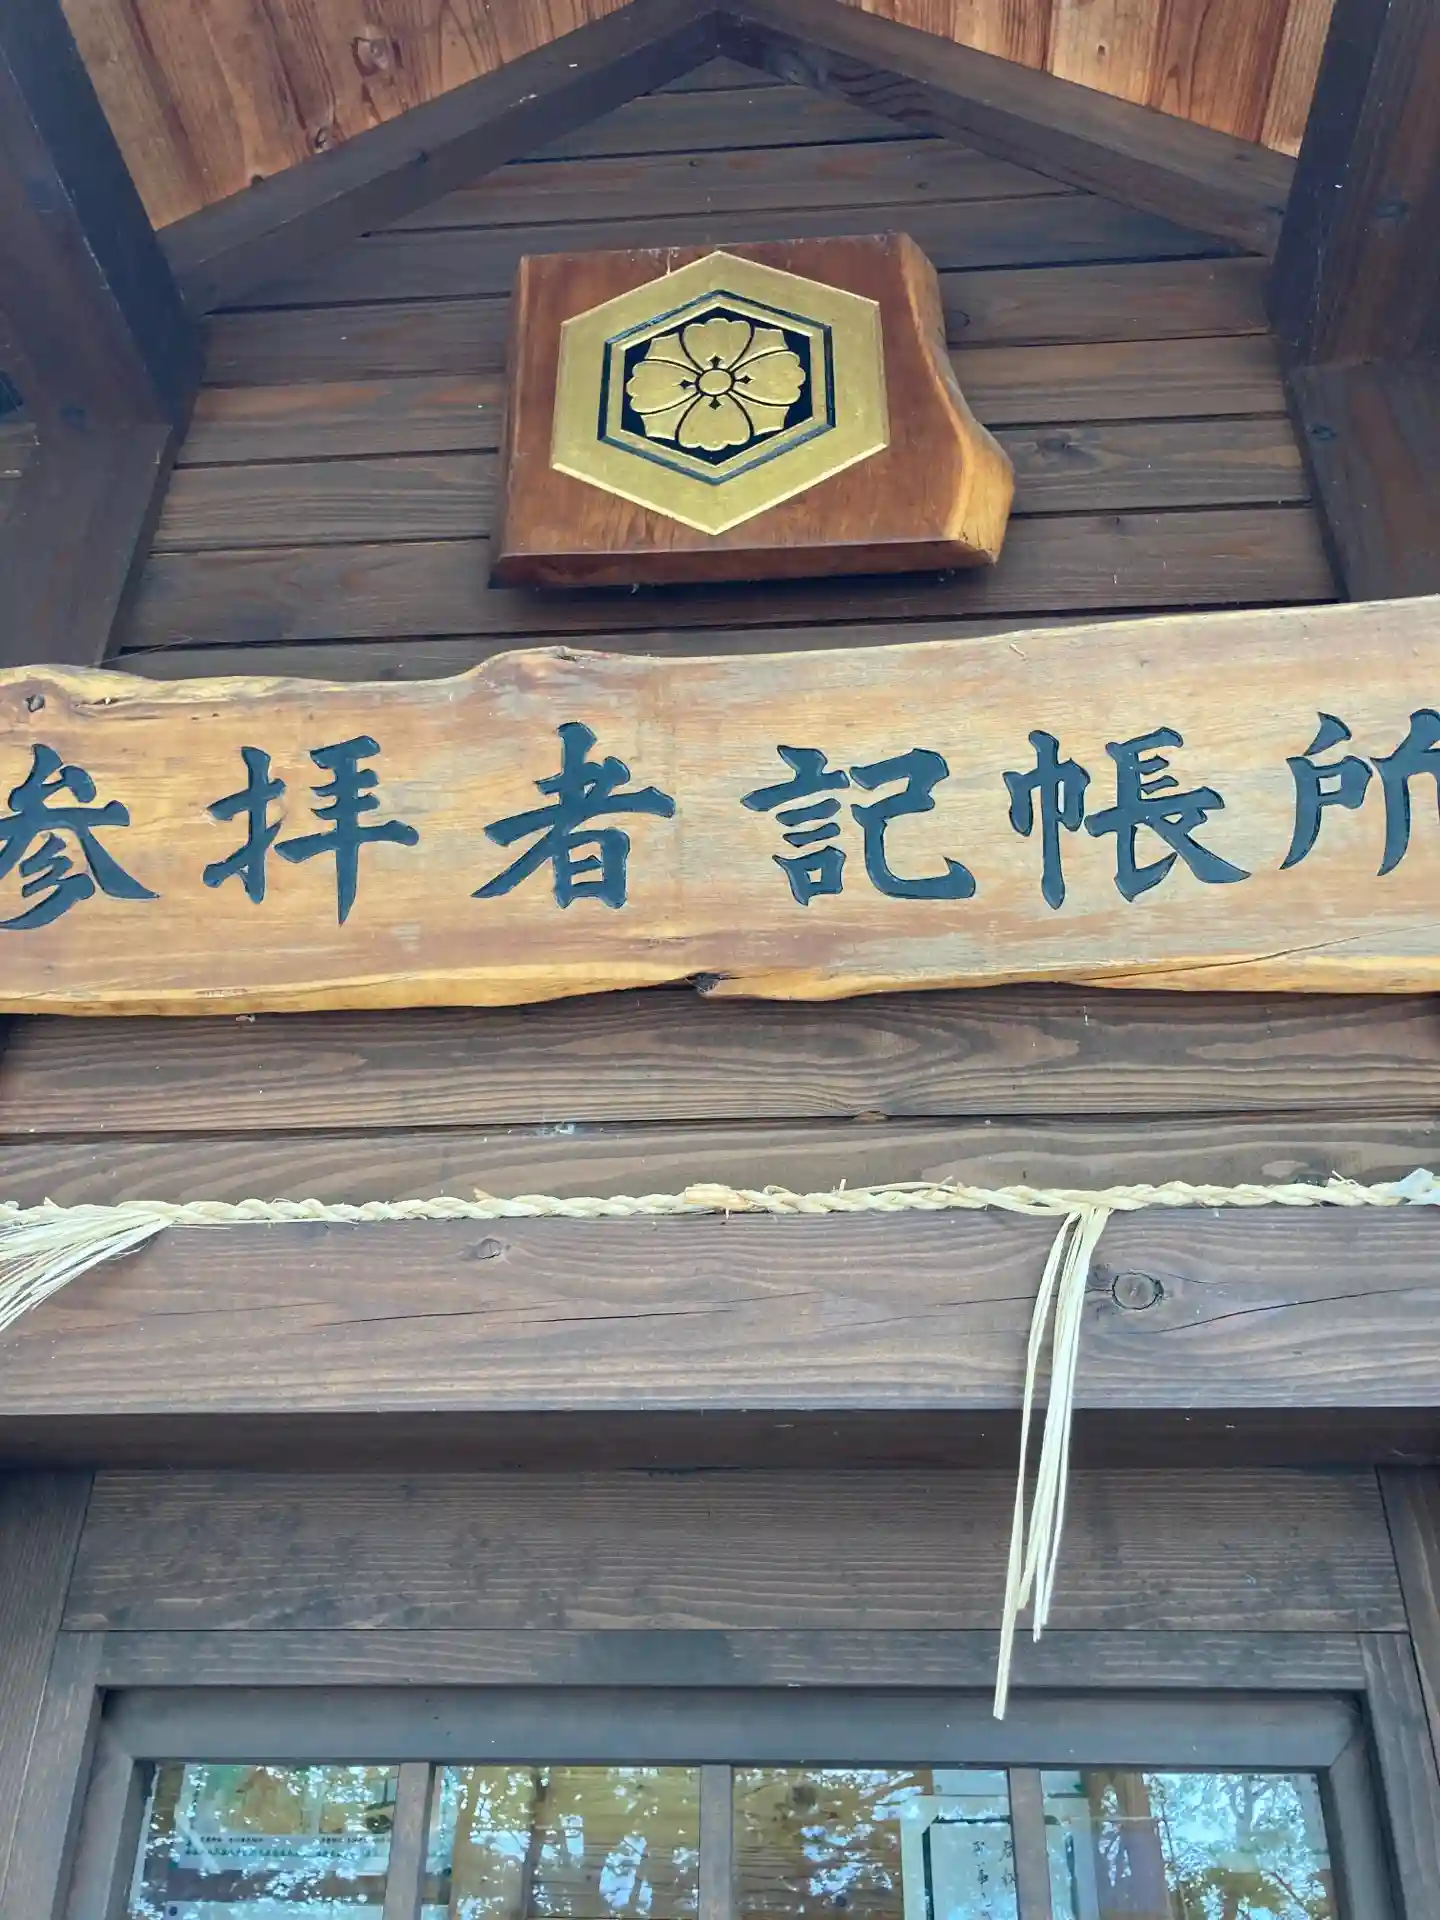 参拝者記帳所